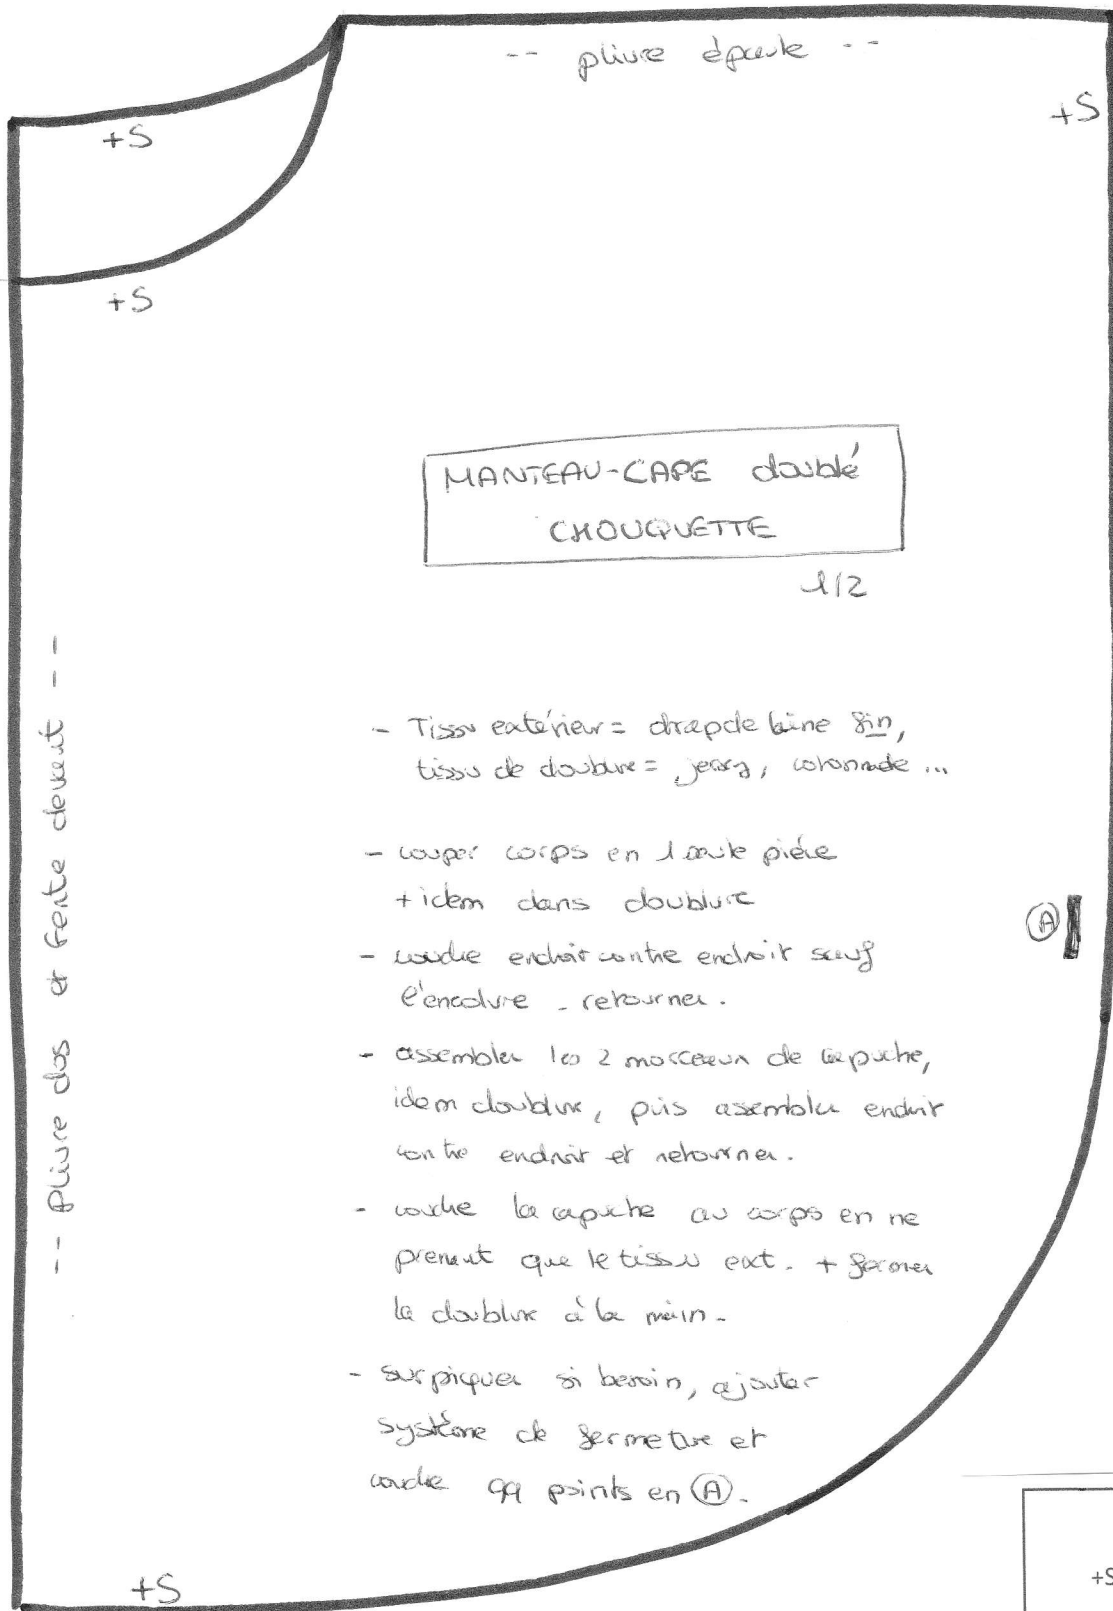 -- pliure épaule --
+S
+S
+S
MANTEAU-CAPE doublé
CHOUQUETTE
1/2
-- pliure dos et fente devant --
- Tissu extérieur = drap de laine fin,
tissu de doublure = jersey, cotonnade ...
- couper corps en 1 seule pièce
+ idem dans doublure
- coudre endroit contre endroit sauf
l'encolure - retourner.
A
- assembler les 2 morceaux de capuche,
idem doublure, puis assembler endroit
contre endroit et retourner.
- coudre la capuche au corps en ne
prenant que le tissu ext. + fermer
la doublure à la main.
- surpiquer si besoin, ajouter
système de fermeture et
coudre qq points en A.
+S
+S